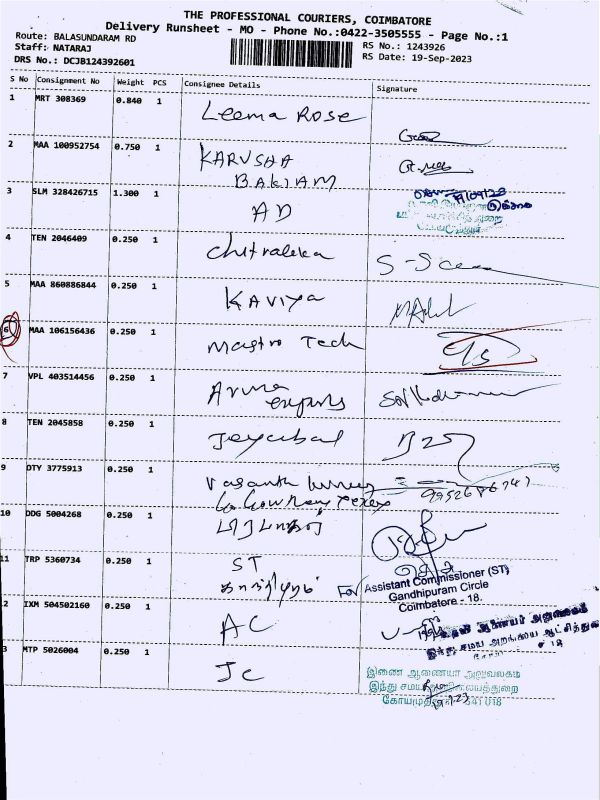 THE PROFESSIONAL COURIERS, COIMBATORE
Delivery Runsheet - MO - Phone No.:0422-3505555 - Page No.:1
Route: BALASUNDARAM RD
Staff: NATARAJ
DRS No.: DCJB124392601
RS No.: 1243926
RS Date: 19-Sep-2023
S No Consignment No Weight PCS Consignee Details Signature
1 MRT 308369 0.840 1 Leema Rose
2 MAA 100952754 0.750 1 KARUSHA
3 SLM 328426715 1.300 1 AD
4 TEN 2046409 0.250 1 chitraleka
5 MAA 860886844 0.250 1 KAVIYA
6 MAA 106156436 0.250 1 Mastro Tech
7 VPL 403514456 0.250 1 Aruna
exports
8 TEN 2045858 0.250 1
9 DTY 3775913 0.250 1 Vasantha
10 DDG 5004268 0.250 1
11 TRP 5360734 0.250 1 ST
For Assistant Commissioner (ST)
Gandhipuram Circle
Coimbatore - 18.
2 IXM 504502160 0.250 1 AC
இந்து சமய அறநிலைய ஆட்சித்துறை
3 MTP 5026004 0.250 1 JC
இணை ஆணையர் அலுவலகம்
இந்து சமய
641 018